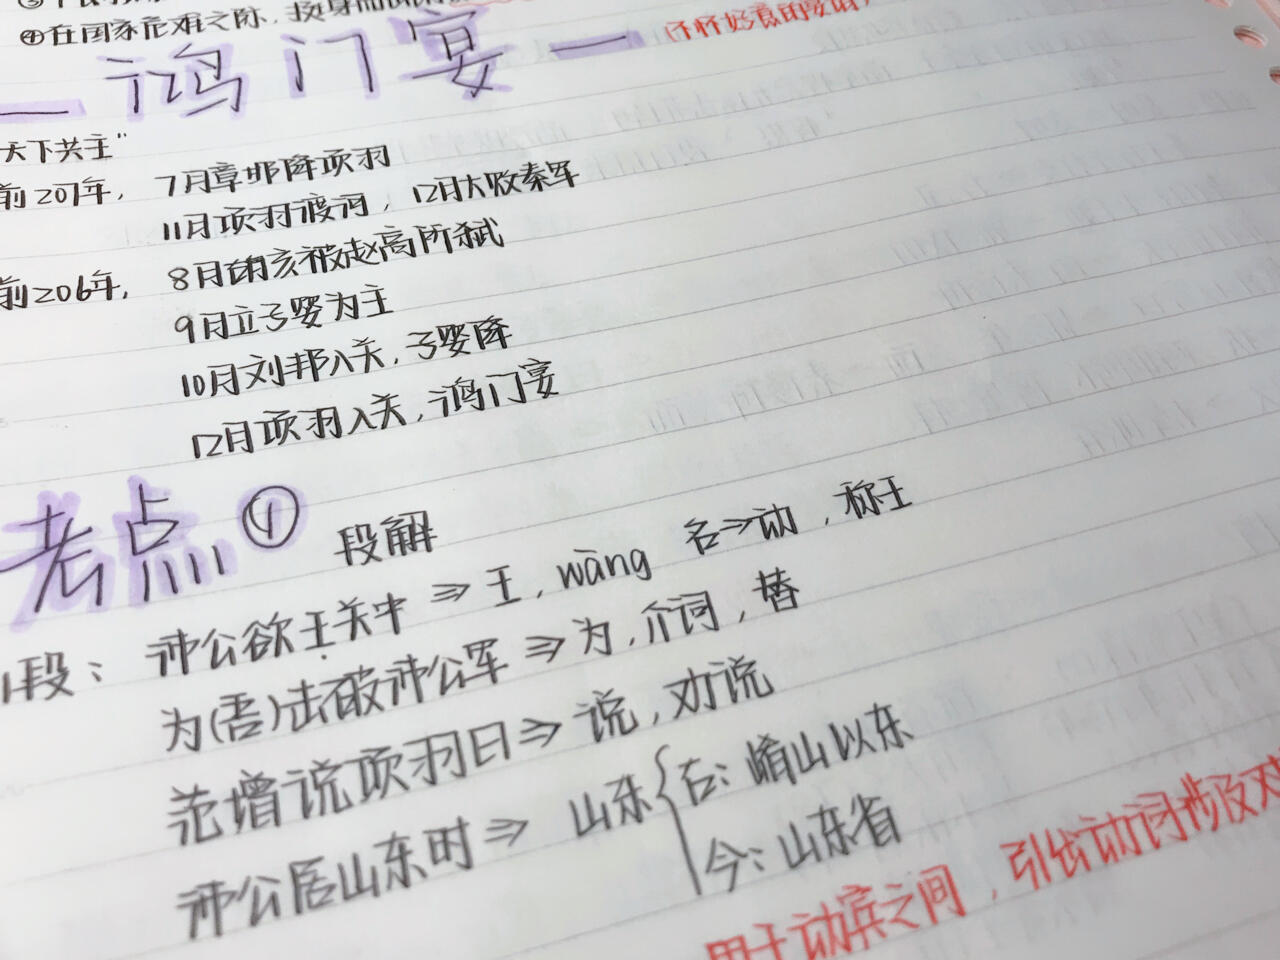 ④在国家危难之际,挺身而出
—鸿门宴—
天下共主"
前207年, 7月章邯降项羽
11月项羽渡河, 12月大败秦军
前206年, 8月胡亥被赵高所弑
9月立子婴为主
10月刘邦入关,子婴降
12月项羽入关,鸿门宴
考点① 段解
1段: 沛公欲王关中⇒王, wàng 名→动, 称王
为(吾)击破沛公军⇒为,介词,替
范增说项羽曰⇒说,劝说
沛公居山东时⇒山东{古:崤山以东
今:山东省
用于动宾之间, 引出动词涉及对